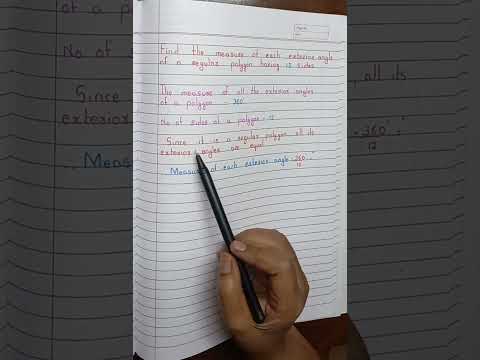 Find the measure of each exterior angle
of a regular polygon having 12 sides
The measure of all the exterior angles
of a polygon = 360°
No of sides of a polygon = 12
Since it is a regular polygon all its
exterior angles are equal
Measure of each exterior angle = 360°
12